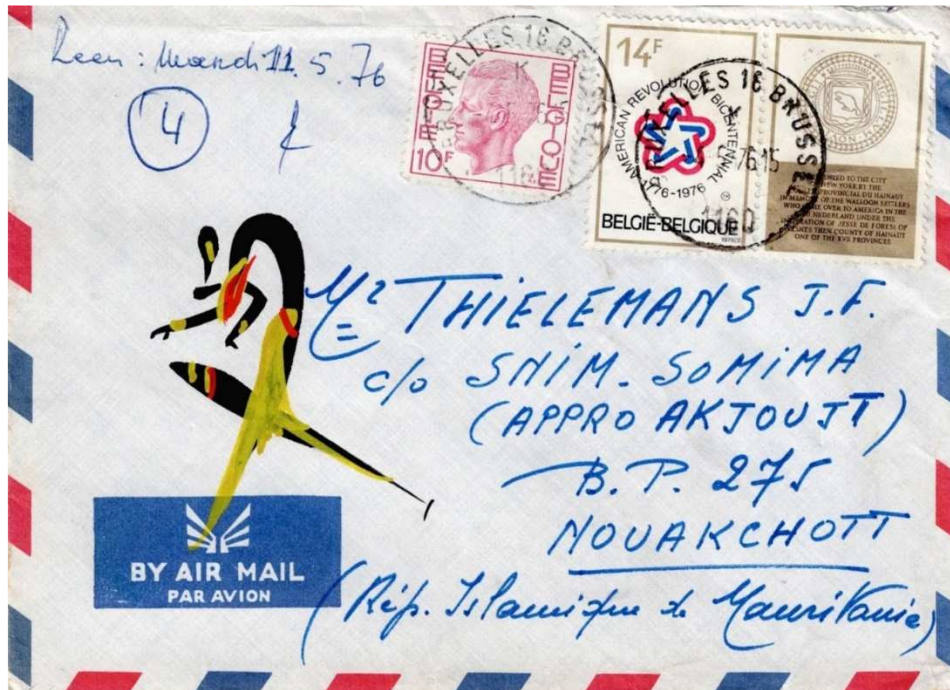 Reçu : Mardi 11.5.76
4
BELGIE
10F
BELGIQUE
BRUXELLES 16 BRUSSEL
14F
AMERICAN REVOLUTION BICENTENNIAL
1776-1976
BELGIË-BELGIQUE
BRUXELLES 16 BRUSSEL
1160
PRESENTED TO THE CITY
OF NEW YORK BY THE
CONSEIL PROVINCIAL DU HAINAUT
IN MEMORY OF THE WALLOON SETTLERS
WHO CAME OVER TO AMERICA IN THE
NIEU NEDERLAND UNDER THE
INSPIRATION OF JESSE DE FOREST OF
AVESNES THEN COUNTY OF HAINAUT
ONE OF THE XVII PROVINCES
Mr THIELEMANS J.F.
c/o SNIM. SOMIMA
(APPRO AKJOUJT)
B.P. 275
NOUAKCHOTT
(Rép. Islamique de Mauritanie)
BY AIR MAIL
PAR AVION